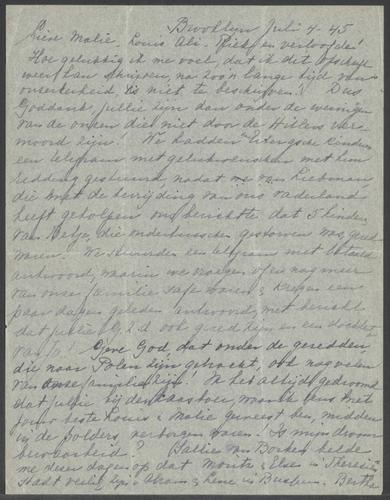 Brooklyn Juli 4 - 45
Lieve Malie, Louis Ali - Riek, en verloofde!
Hoe gelukkig ik me voel, dat ik dit opschrift
weer kan schrijven, na zoo'n lange tijd van
onzekerheid, is niet te beschrijven! Dus
Goddank, jullie zijn dan onder de weinigen
van de onzen die niet door de Hitlers ver
moord zijn! We hadden kinderen
een telegram met gelukwenschen met hun
redding gestuurd, nadat me van Liebman
die met de bevrijding van ons vaderland
heeft geholpen ons berichtte dat 5 kinders
van Betje, die ondertusschen gestorven was, gered
waren. We stuurden een telegram met betaald
antwoord, waarin we vroegen of er nog meer
van onze familie safe waren; kregen een
paar dagen geleden antwoord, met bericht
dat jullie ook goed zijn en een dochter
van Jo! Geve God dat onder de geredden,
die naar Polen zijn gebracht, ook nog velen
van onze familie zijn! Ik heb altijd gedroomd
dat jullie bij den waar ik eens met
jou beste Louis & Malie geweest ben, midden
in de polders, verborgen waren! Is mijn droom
bewaarheid? Sallie van belde
me dezer dagen op dat Monts & Else in Theresien
stadt veilig zijn. Abram & Lene in Bussum. Bertha